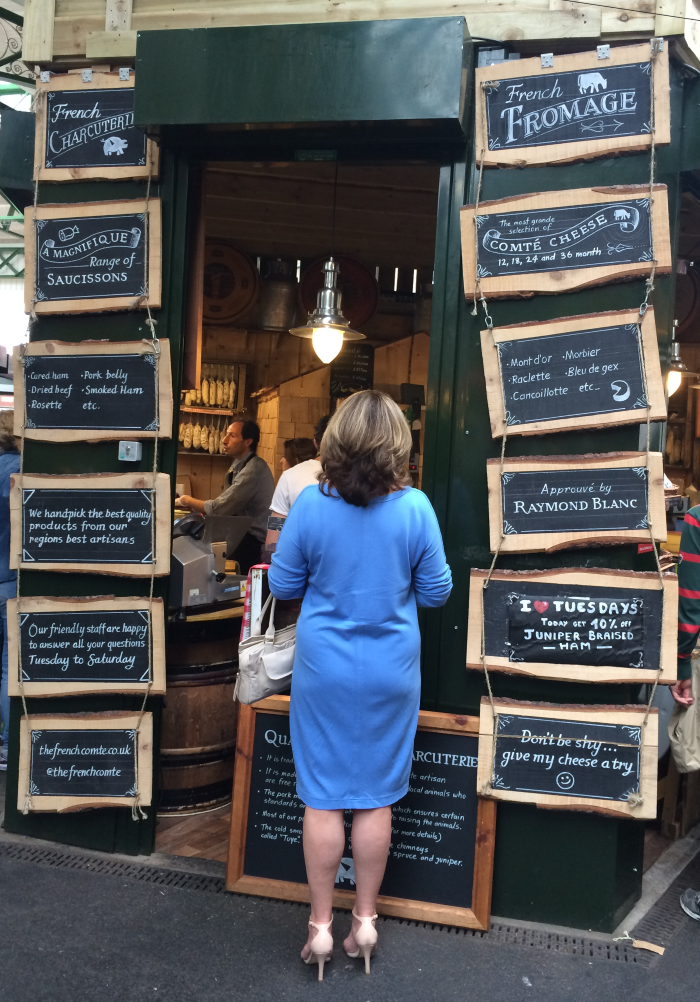 French
CHARCUTERI
A MAGNIFIQUE
Range of
SAUCISSONS
·Cured ham ·Pork belly
·Dried beef ·Smoked Ham
·Rosette etc.
We handpick the best quality
products from our
regions best artisans
Our friendly staff are happy
to answer all your questions
Tuesday to Saturday
thefrenchcomte.co.uk
@thefrenchcomte
French
FROMAGE
The most grande
selection of
COMTÉ CHEESE
12, 18, 24 and 36 month
·Mont d'or ·Morbier
·Raclette ·Bleu de gex
·Cancoillotte etc...
Approuvé by
RAYMOND BLANC
I ❤ TUESDAYS
TODAY GET 10% OFF
JUNIPER BRAISED
— HAM —
Don't be shy...
give my cheese a try
QUA ARCUTERIE
·It is trad
·It is made artisan
are free local animals who
·The pork m which ensures certain
standards to raising the animals.
·Most of our p for more details)
·The cold smo chimneys
called "Tuye spruce and juniper.